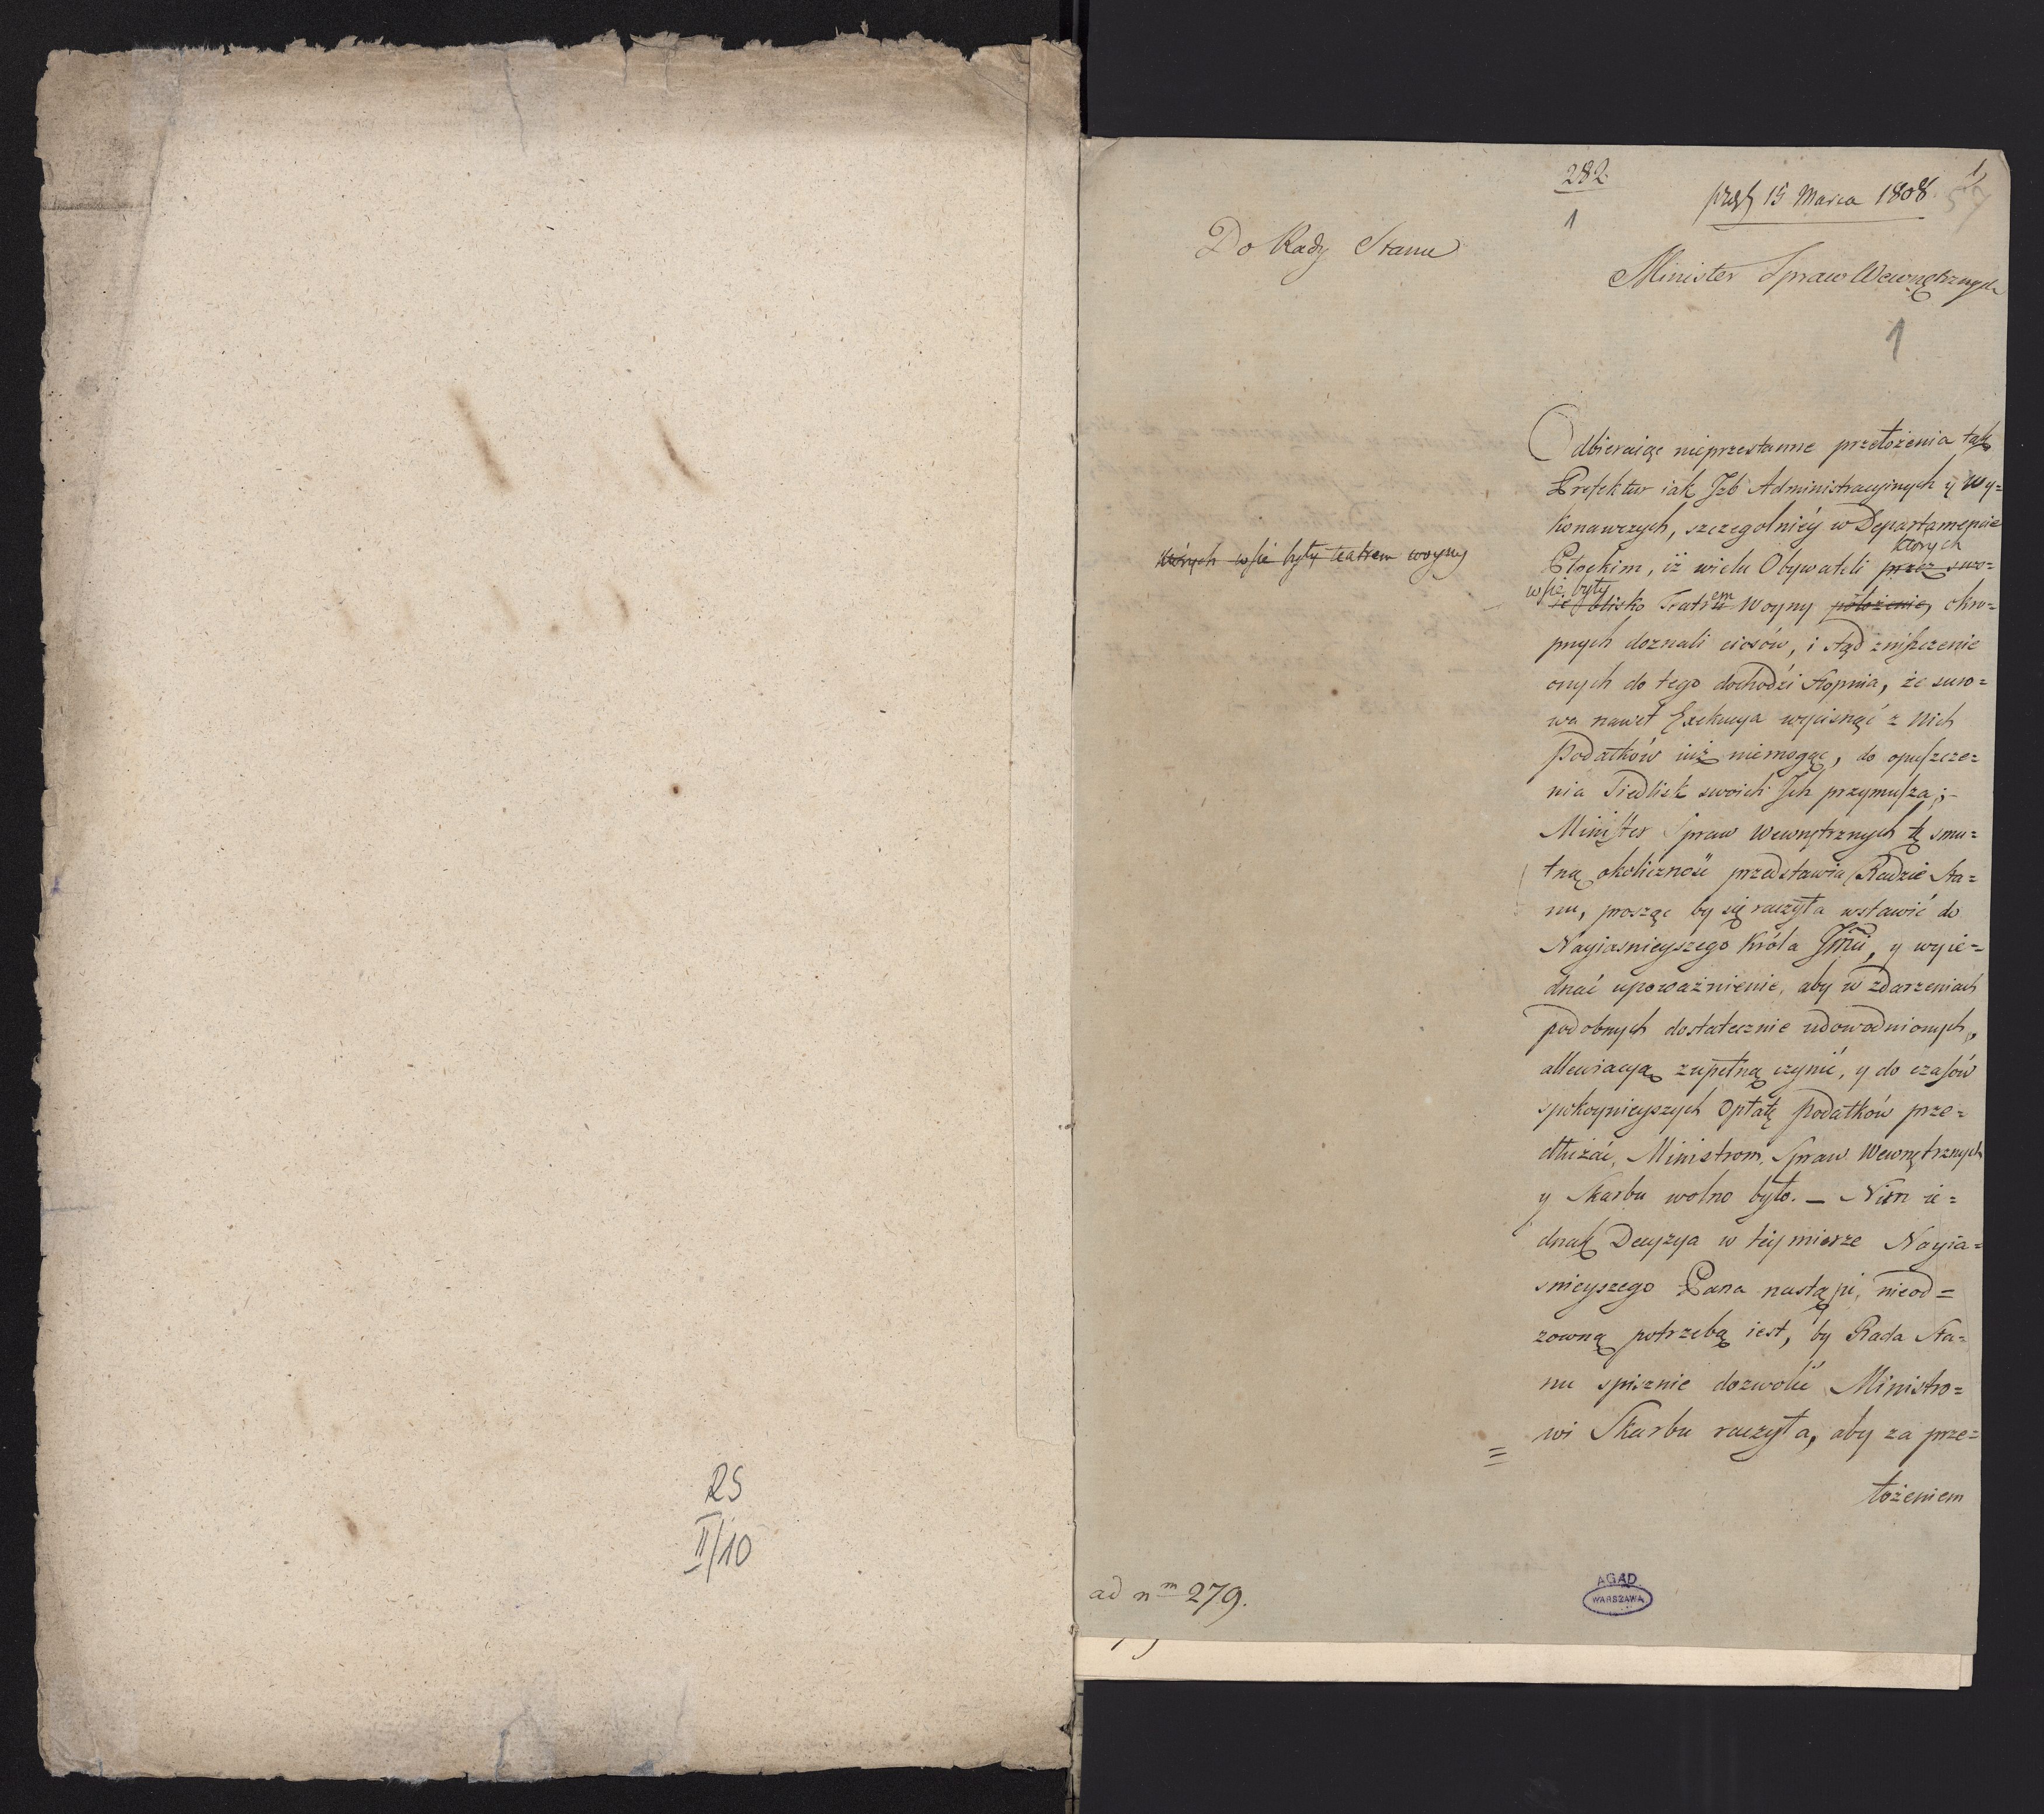 RS
II/10
282.
1
15 Marca 1808
Do Rady Stanu
Minister Spraw Wewnętrznych
1
Odbieraiąc nieprzestanne przełożenia tak
Prefektur iak Izb Administracyinych y Wy=
konawczych, szczegolniéy w Departamencie
których
Płockim, iż wielu Obywateli przez swo=
których wsie były teatrem woyny
wsie były
ie blisko Teatrem Woyny położenie, okro=
pnych doznali ciosów, i stąd zniszczenie
onych do tego dochodzi stopnia, że suro=
wa nawet Exekucya wycisnąć z Nich
Podatków iuż niemogąc, do opuszcze=
nia Siedlisk swoich Ich przymusza;-
Minister Spraw Wewnętrznych tę smu=
tną okoliczność przedstawia Radzie Sta=
nu, prosząc by się raczyła wstawić do
Nayiasnieyszego Króla Jmci, y wyie=
dnać upoważnienie, aby w zdarzeniach
podobnych dostatecznie udowodnionych,
allewiacyą zupełną czynić, y do czasów
spokoynieyszych Opłatę Podatków prze=
dłużać, Ministrom Spraw Wewnętrznych
y Skarbu wolno było. _ Nim ie=
dnak Decyzya w téy mierze Nayia=
snieyszego Pana nastąpi, nieod=
zowną potrzebą iest, by Rada Sta=
nu spiesznie dozwolić Ministro=
wi Skarbu raczyła, aby za prze=
łożeniem
ad nm 279.
AGAD
WARSZAWA